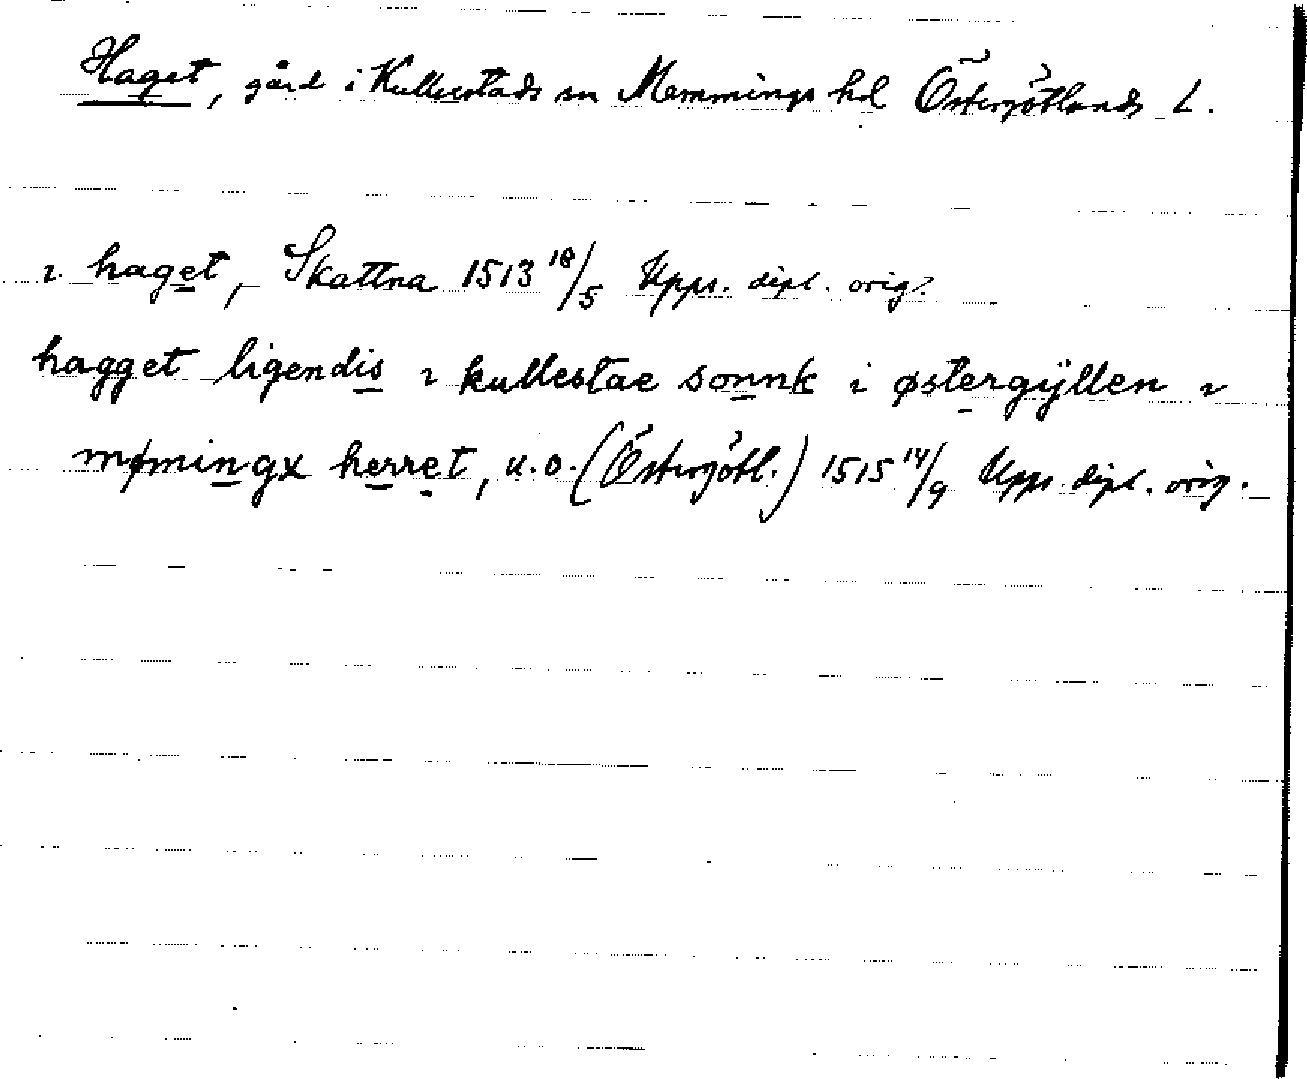 Haget, gård i Kullerstads sn Memmings hd Östergötlands L.
i haget, Skattna 1513 18/5 Upps. dipl. orig.
hagget ligendis i kullestae sonnk i østergÿllen i
mømingx herret, u.o. (Östergötl.) 1515 14/9 Upps. dipl. orig.